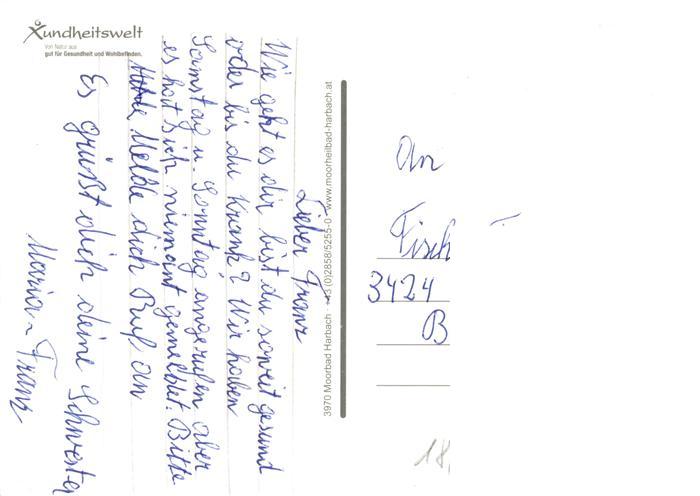 Xundheitswelt
Von Natur aus
gut für Gesundheit und Wohlbefinden.
Lieber Franz
Wie geht es dir bist du soweit gesund
oder bis du Krank? Wir haben
Samstag u. Sonntag angerufen aber
es hat sich niemant gemeldet. Bitte
Melde dich Ruf an
Es grüßt dich deine Schwester
Maria - Franz
3970 Moorbad Harbach · +43 (0)2858/5255-0 · www.moorheilbad-harbach.at
An
Fisch
3424
B
18